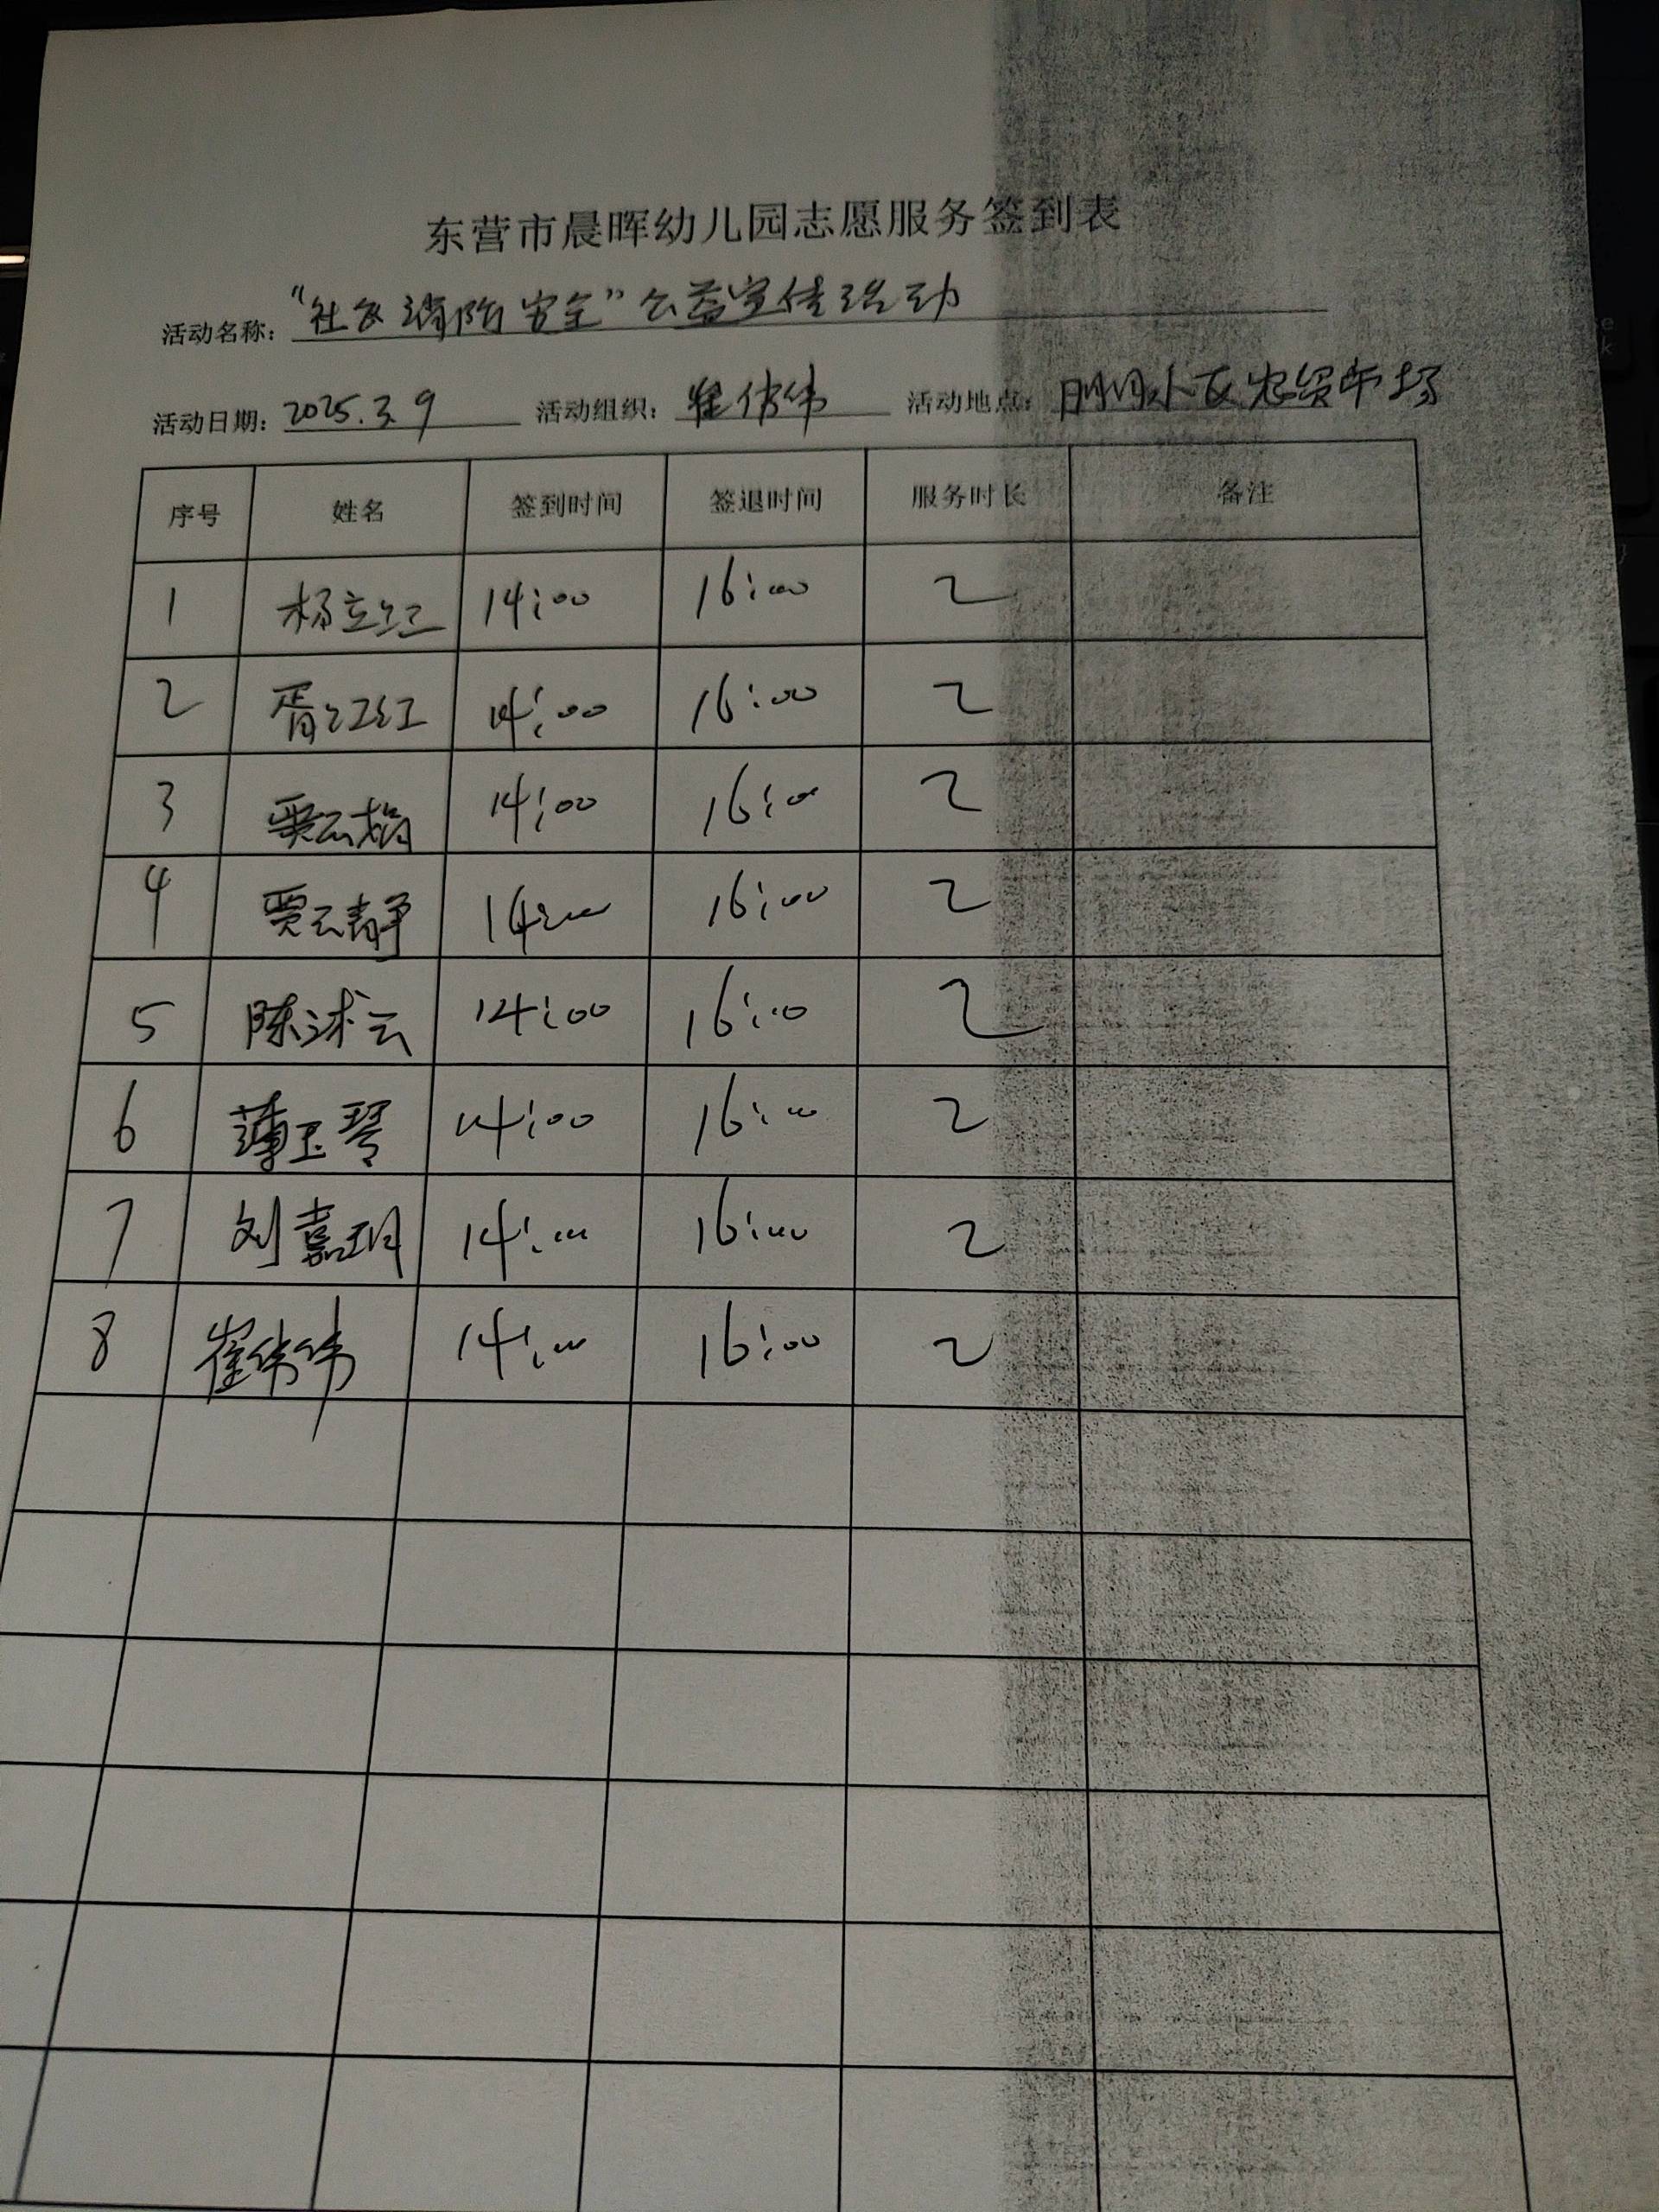 东营市晨晖幼儿园志愿服务签到表
活动名称: “社区消防安全”公益宣传活动
活动日期: 2025.3.9 活动组织: 崔伟伟 活动地点: 明月小区农贸市场
序号 姓名 签到时间 签退时间 服务时长 备注
1 杨立红 14:00 16:00 2
2 胥江红 14:00 16:00 2
3 贾云娟 14:00 16:00 2
4 贾云静 14:00 16:00 2
5 陈球云 14:00 16:00 2
6 薄玉琴 14:00 16:00 2
7 刘嘉玥 14:00 16:00 2
8 崔伟伟 14:00 16:00 2